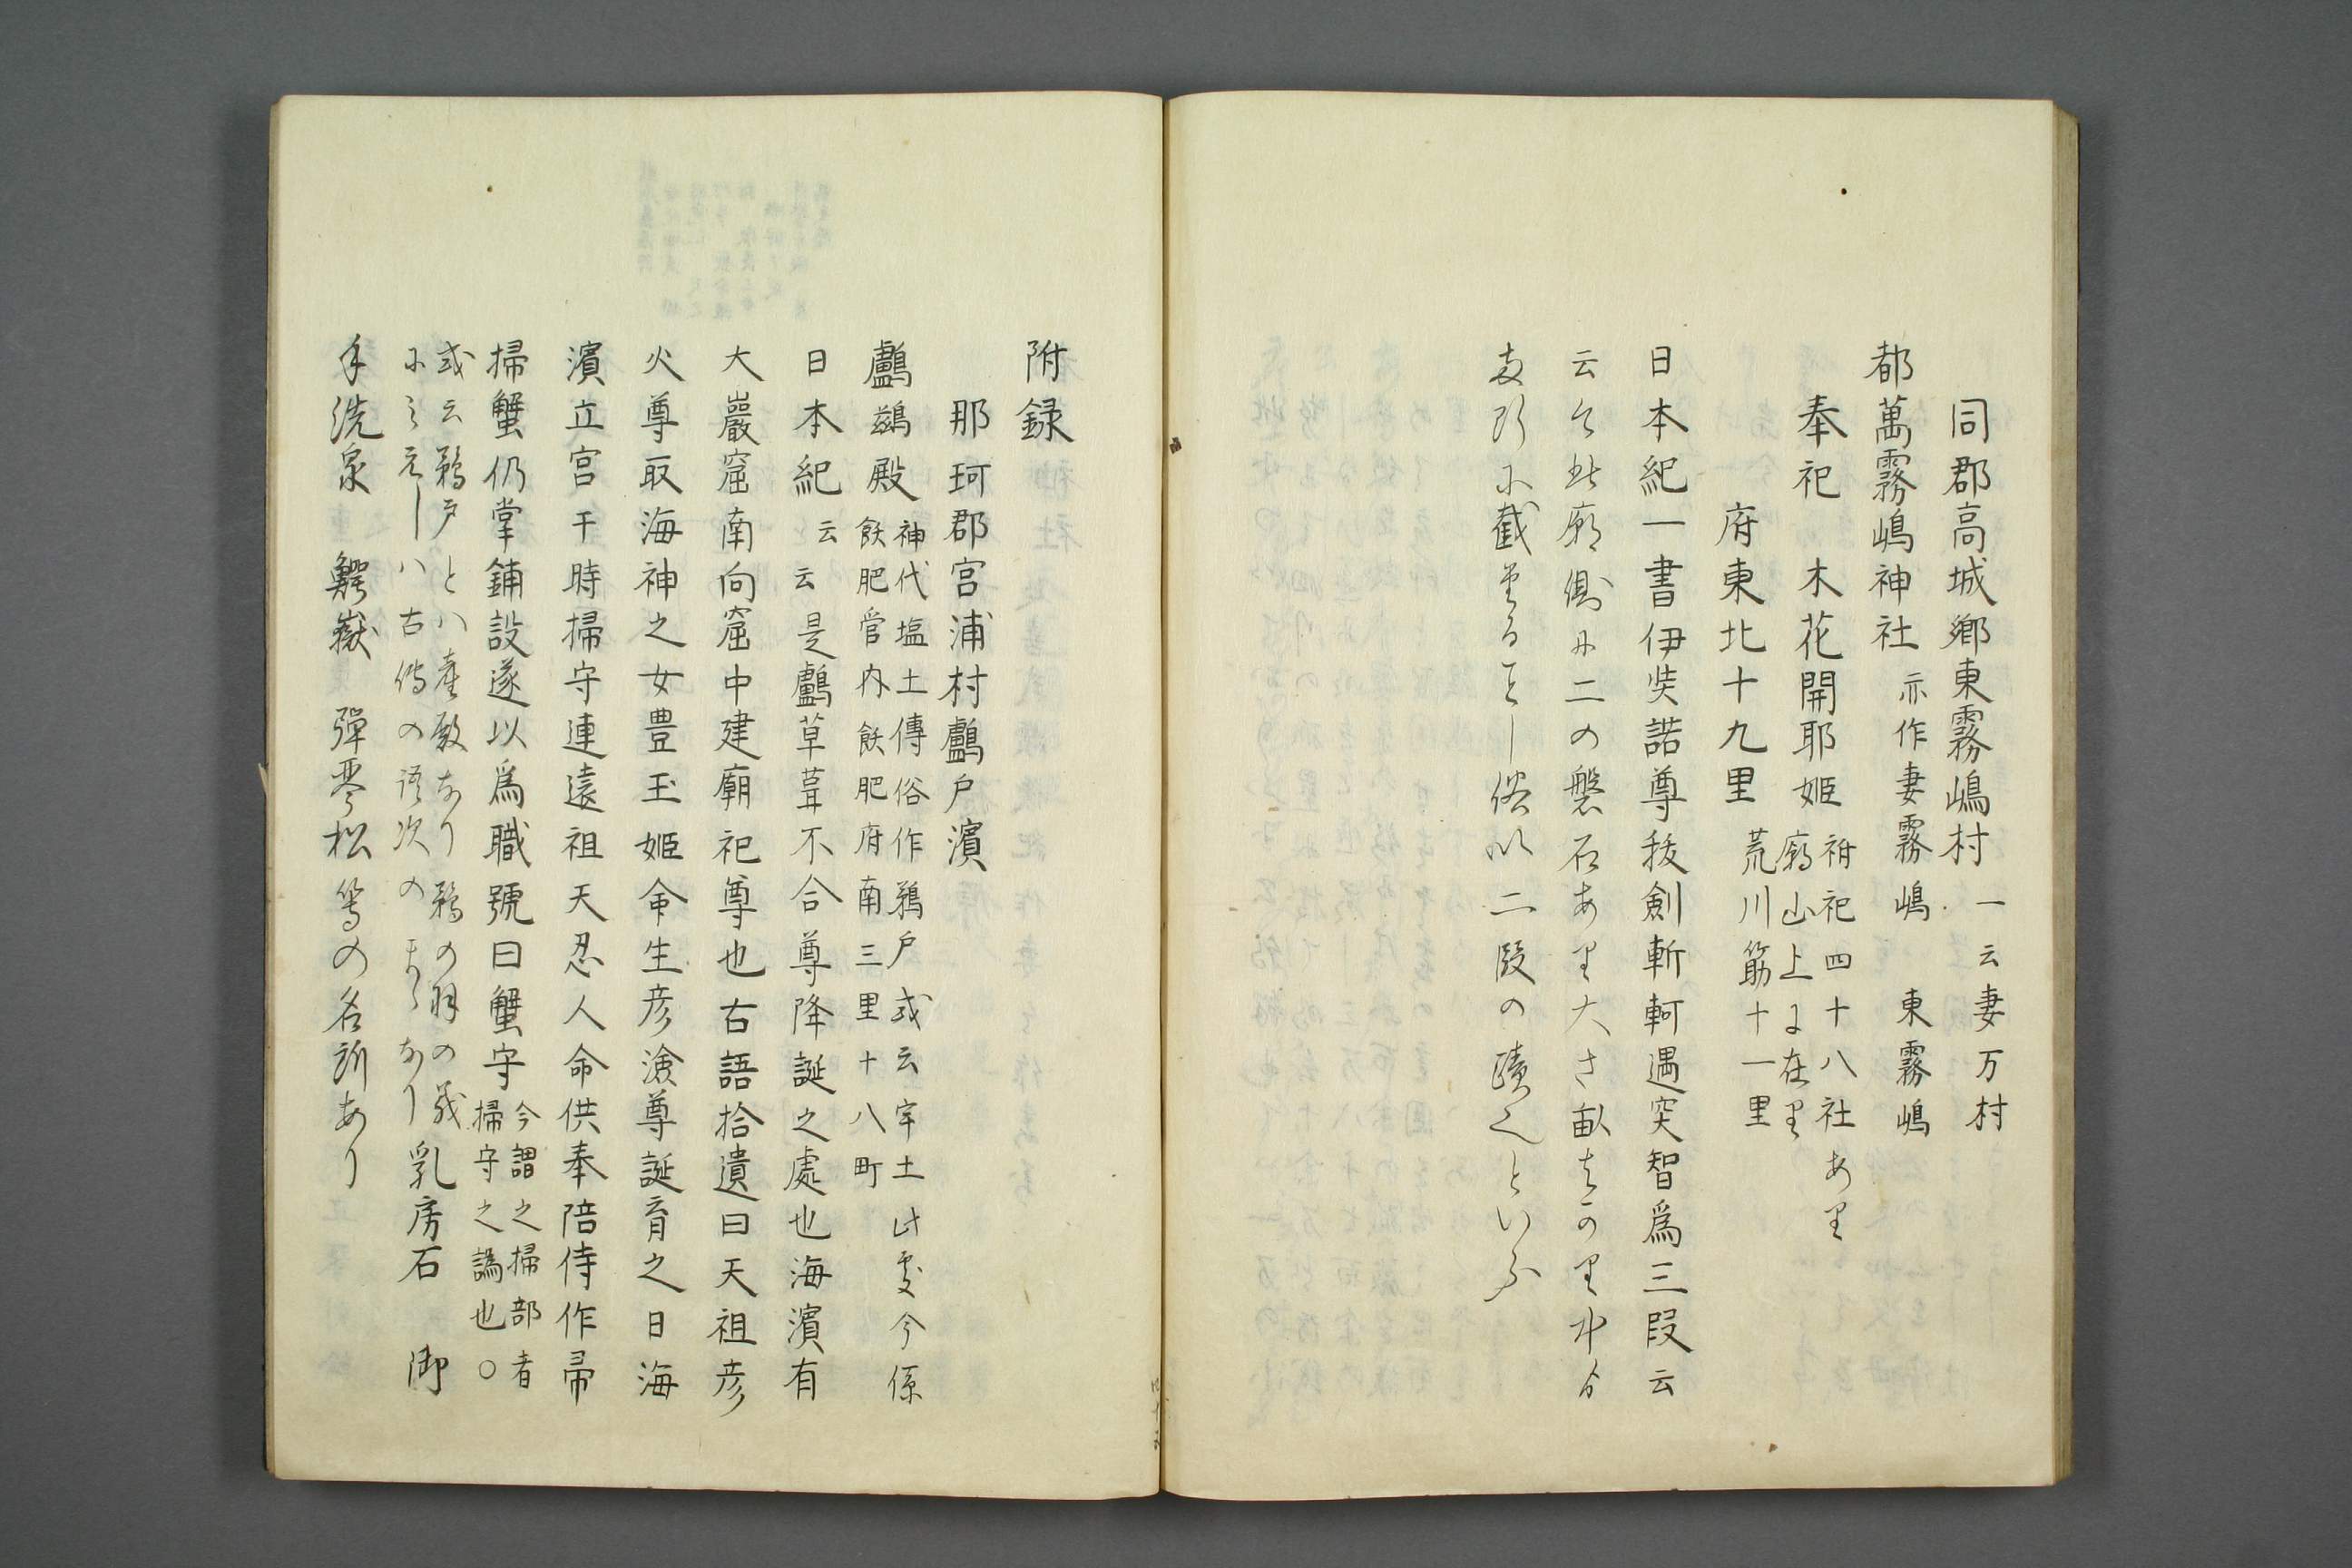 同郡高城郷東霧嶋村 一云妻万村
都萬霧嶋神社 亦作妻霧嶋 東霧嶋
奉祀 木花開耶姫 祔祀四十八社あり
廟山上に在り
府東北十九里 荒川筋十一里
日本紀一書伊奘諾尊拔劍斬軻遇突智爲三段云
云今此廟側に二の磐石あり大さ畝はかり中分
両断に截るることし俗以二段の蹟といふ
附録
那珂郡宮浦村鸕戸濱
鸕鷀殿 神代塩土傳俗作鵜戸或云宇土此処今係
飫肥管内飫肥府南三里十八町
日本紀云云是鸕草葺不合尊降誕之處也海濱有
大巖窟南向窟中建廟祀尊也古語拾遺曰天祖彦
火尊取海神之女豊玉姫命生彦瀲尊誕育之日海
濱立宮于時掃守連遠祖天忍人命供奉陪侍作帚
掃蟹仍掌鋪設遂以爲職號曰蟹守 今謂之掃部者
掃守之譌也○
或云鵜戸とハ産殿なり鵜の羽の義
にみえしハ古傳の語次のまゝなり 乳房石 御
手洗泉 鰐嶽 彈琴松等の名所あり